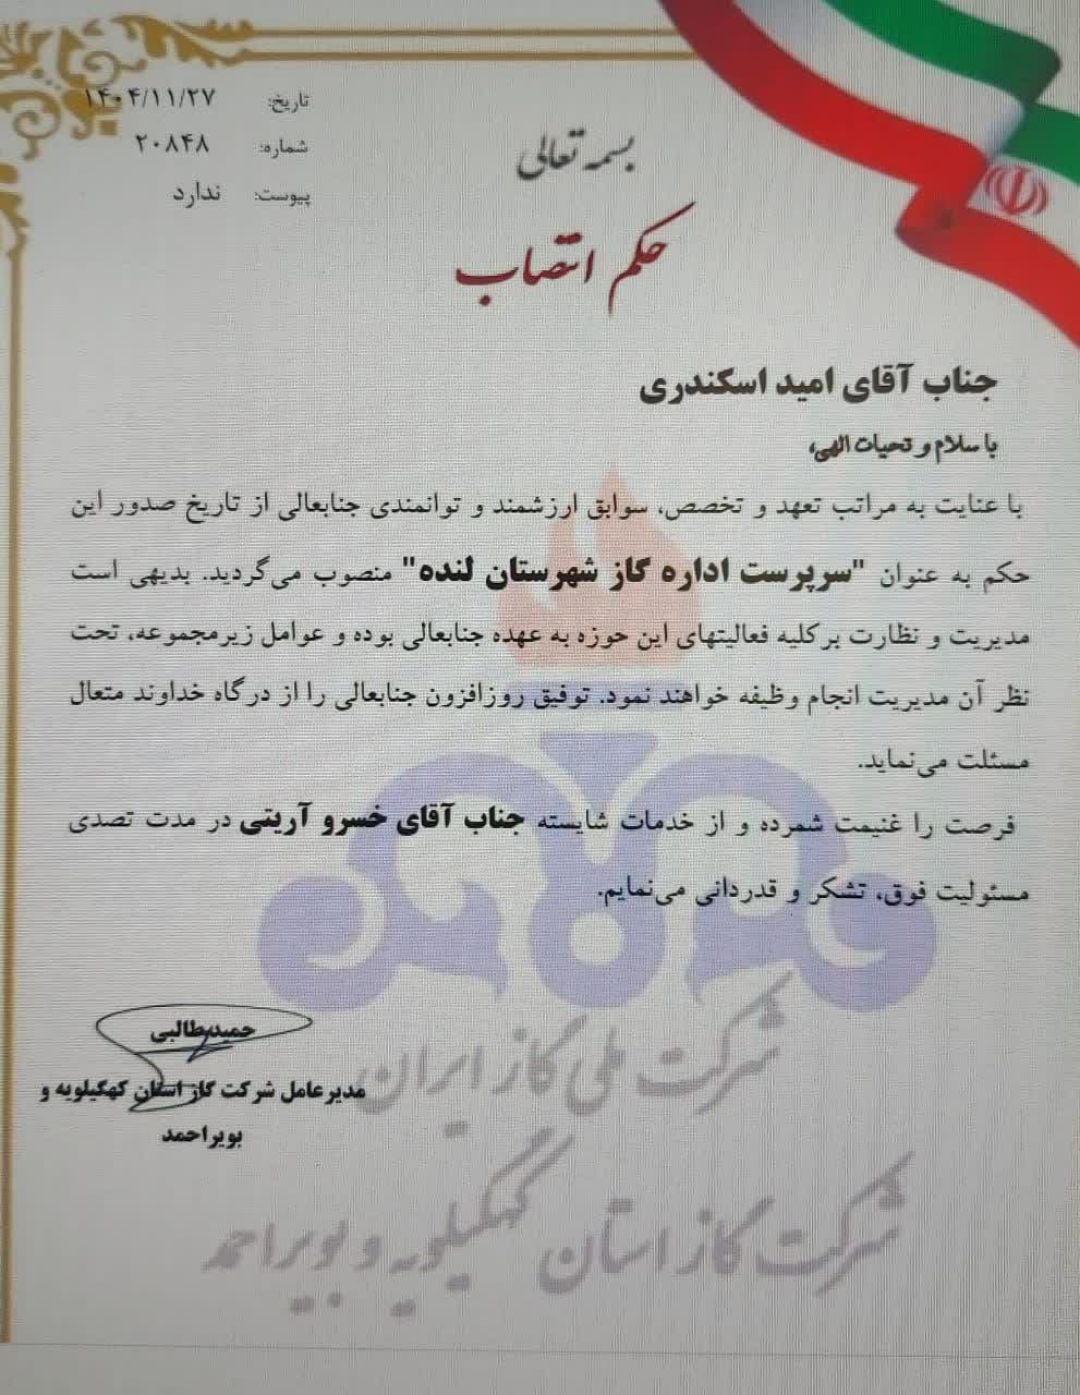 تاریخ: ۱۴۰۴/۱۱/۲۷
شماره: ۲۰۸۴۸
پیوست: ندارد
بسمه تعالی
حکم انتصاب
جناب آقای امید اسکندری
با سلام و تحیات الهی،
با عنایت به مراتب تعهد و تخصص، سوابق ارزشمند و توانمندی جنابعالی از تاریخ صدور این
حکم به عنوان "سرپرست اداره گاز شهرستان لنده" منصوب می‌گردید. بدیهی است
مدیریت و نظارت بر کلیه فعالیتهای این حوزه به عهده جنابعالی بوده و عوامل زیرمجموعه، تحت
نظر آن مدیریت انجام وظیفه خواهند نمود. توفیق روزافزون جنابعالی را از درگاه خداوند متعال
مسئلت می‌نماید.
فرصت را غنیمت شمرده و از خدمات شایسته جناب آقای خسرو آریتی در مدت تصدی
مسئولیت فوق، تشکر و قدردانی می‌نمایم.
حمید طالبی
مدیرعامل شرکت گاز استان کهگیلویه و
بویراحمد
شرکت ملی گاز ایران
شرکت گاز استان کهگیلویه و بویراحمد